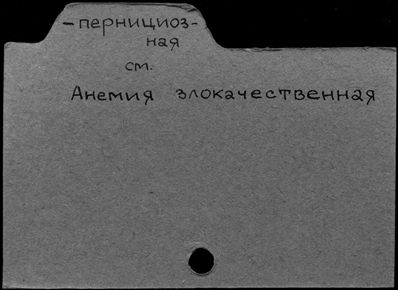 -пернициоз-
ная
см.
Анемия злокачественная